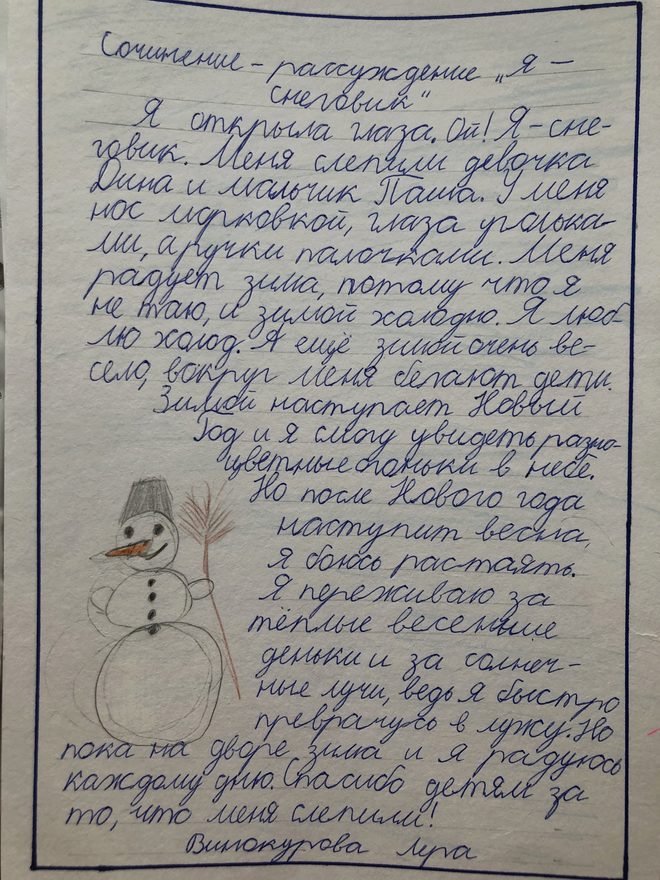 Сочинение - рассуждение „Я -
снеговик“
Я открыла глаза. Ой! Я - сне-
говик. Меня слепили девочка
Дина и мальчик Паша. У меня
нос морковкой, глаза уголька-
ми, а ручки палочками. Меня
радует зима, потому что я
не таю, и зимой холодно. Я люб-
лю холод. А ещё зимой очень ве-
село, вокруг меня бегают дети.
Зимой наступает Новый
Год и я смогу увидеть разно-
цветные огоньки в небе.
Но после Нового года
наступит весна,
я боюсь растаять.
Я переживаю за
тёплые весенние
деньки и за солнеч-
ные лучи, ведь я быстро
превращусь в лужу. Но
пока на дворе зима и я радуюсь
каждому дню. Спасибо детям за
то, что меня слепили!
Винокурова Лера